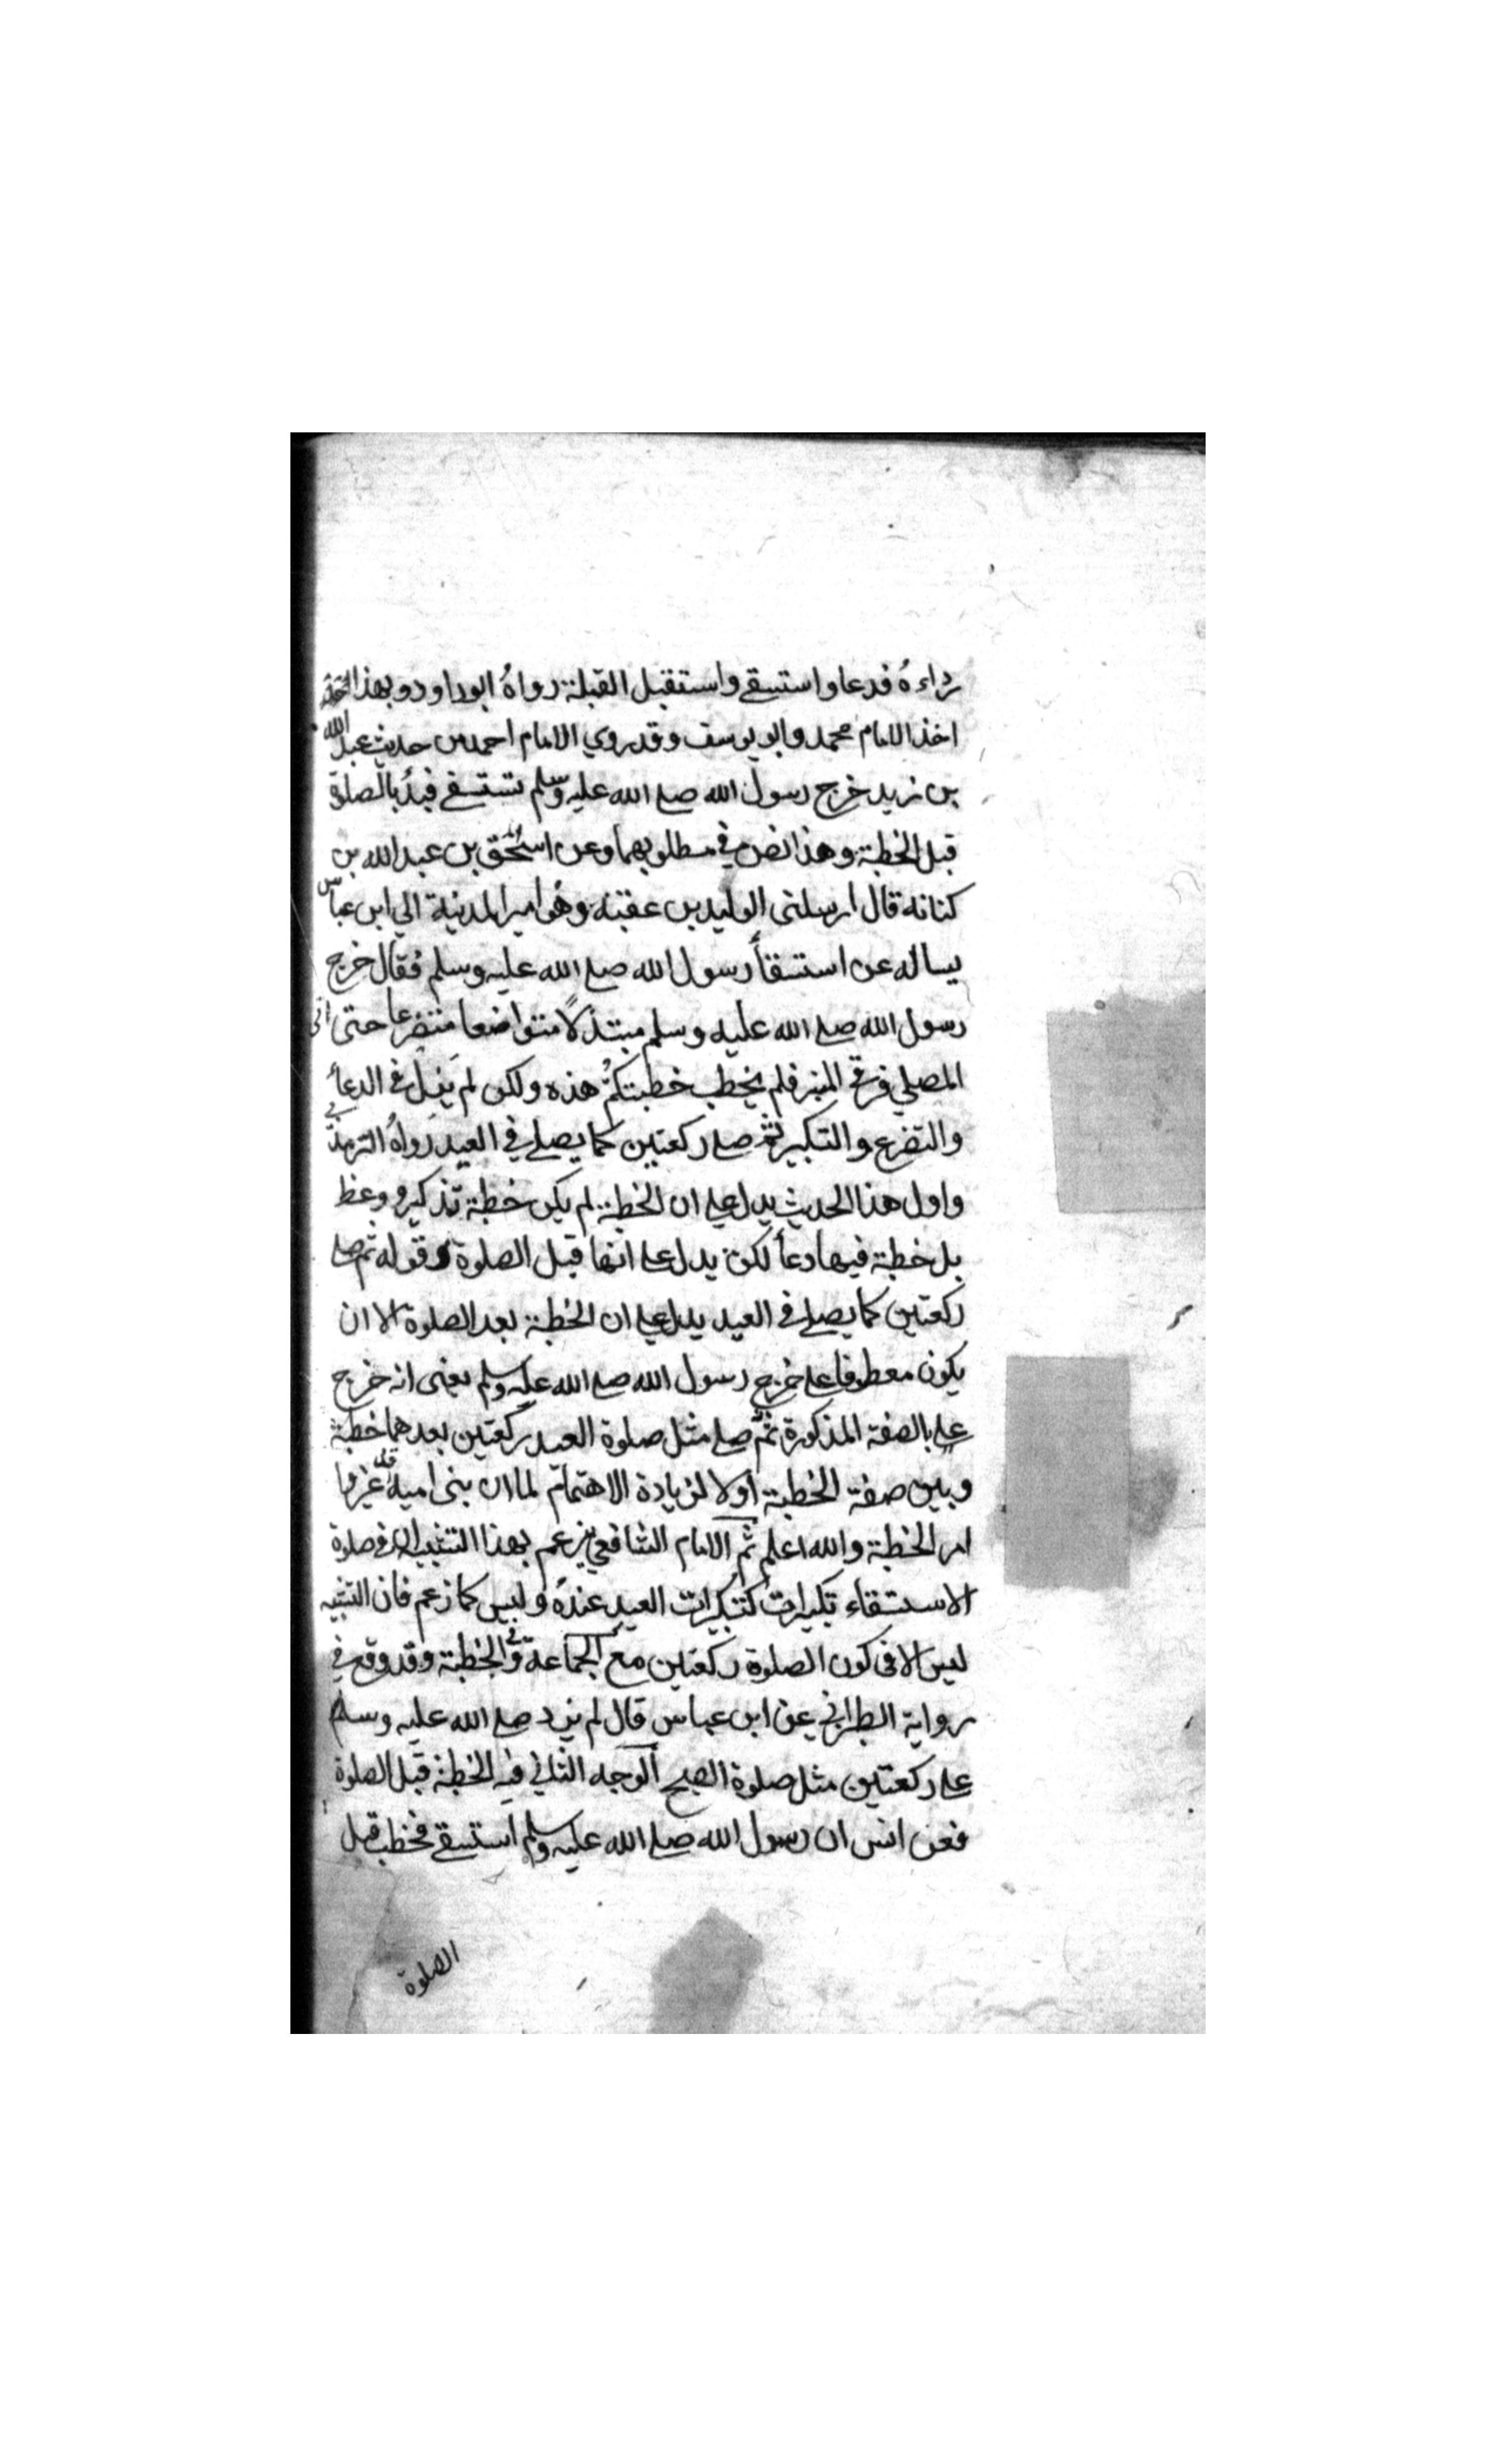 رداءهُ فدعا واستسقے واستقبل القبلة رواهُ ابوداود وبهذا
اخذ الامام محمد وابو يوسف وقد روي الامام احمد من حديث عبد الله
بن زيد خرج رسول الله صلے الله عليه وسلم تستسقے فبدُ بالصلوة
قبل الخطبة وهذا نص في مطلوبهما وعن اسحٰق بن عبد الله بن
كنانه قال ارسلنى الوليد بن عقبته وهُو امير المدينة الي ابن عباس
يساله عن استسقأ رسول الله صلے الله عليه وسلم فقال خرج
رسول الله صلے الله عليه وسلم مبتذلاً متواضعا متضرعا حتى اتى
المصلي فرقے المنبر فلم يخطب خطبتكمُ هذه ولكن لم يزل فى الدعأ
والتضرع والتكبير ثم صلے ركعتين كما يصلے في العيد رواهُ الترمذي
واول هذا الحديث يدل علے ان الخطبة لم يكن خطبة تذكير ووعظ
بل خطبة فيها دعأ لكن يدل علے انها قبل الصلوة وقوله ثم صلے
ركعتين كما يصلے فى العيد يدل علے ان الخطبة بعد الصلوة الا ان
يكون معطوفا علے خرج رسول الله صلے الله عليه وسلم يعنى انه خرج
علے بالصفة المذكورة ثم صلے مثل صلوة العيد ركعتين بعدهما خطبة
وبين صفة الخطبة أولا لزيادة الاهتمام لما ان بنى امية قد غيروا
امر الخطبة والله اعلم ثم الامام الشافعي يزعم بهذا التشبيه ان فى صلوة
الاستسقاء تكبيرات كتكبيرات العيد عندهُ وليس كما زعم فان التشبيه
ليس الا فى كون الصلوة ركعتين مع الجماعة وفى الخطبة وقد وقع في
رواية الطبراني عن ابن عباس قال لم يزد صلے الله عليه وسلم
علے ركعتين مثل صلوة الصبح الوجه الثاني فيه الخطبة قبل الصلوة
فعن انس ان رسول الله صلے الله عليه وسلم استسقے فخطب قبل
الصلوة